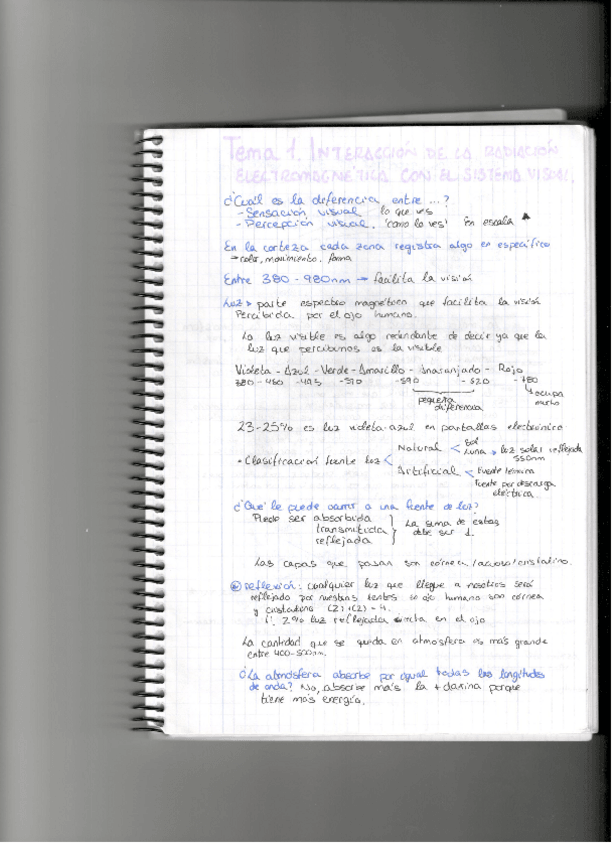 Tema 1. INTERACCIÓN DE LA RADIACIÓN
ELECTROMAGNÉTICA CON EL SISTEMA VISUAL.
¿Cuál es la diferencia entre ...?
- Sensación visual lo que ves
- Percepción visual. 'como lo ves' En escala
En la corteza cada zona registra algo en específico
→ color, movimiento, forma
Entre 380 - 980nm → facilita la visión
Luz → parte espectro magnético que facilita la visión
Percibida por el ojo humano.
La luz visible es algo redundante de decir ya que la
luz que percibimos es la visible
Violeta - Azul - Verde - Amarillo - Anaranjado - Rojo
380 - 450 - 495 - 570 - 590 - 620 - 780
pequeña diferencia
→ ocupa
23-25% es luz violeta-azul en pantallas electrónico
• Clasificación fuente luz < Natural < Sol
Luna → luz solar reflejada 550nm
Artificial < fuente térmica
fuente por descarga eléctrica
¿Qué le puede ocurrir a una fuente de luz?
Puede ser absorbida
transmitida
reflejada
La suma de estas debe ser 1.
Las capas que pasan son córnea/acuoso/cristalino.
Reflexión: cualquier luz que llegue a nosotros será
reflejado por nuestras lentes ojo humano son córnea
y cristalino
2% luz reflejada en el ojo
La cantidad que se queda en atmósfera es más grande
entre 400-500nm.
¿La atmósfera absorbe por igual todas las longitudes
de onda? No, absorbe más la + dañina porque
tiene más energía.